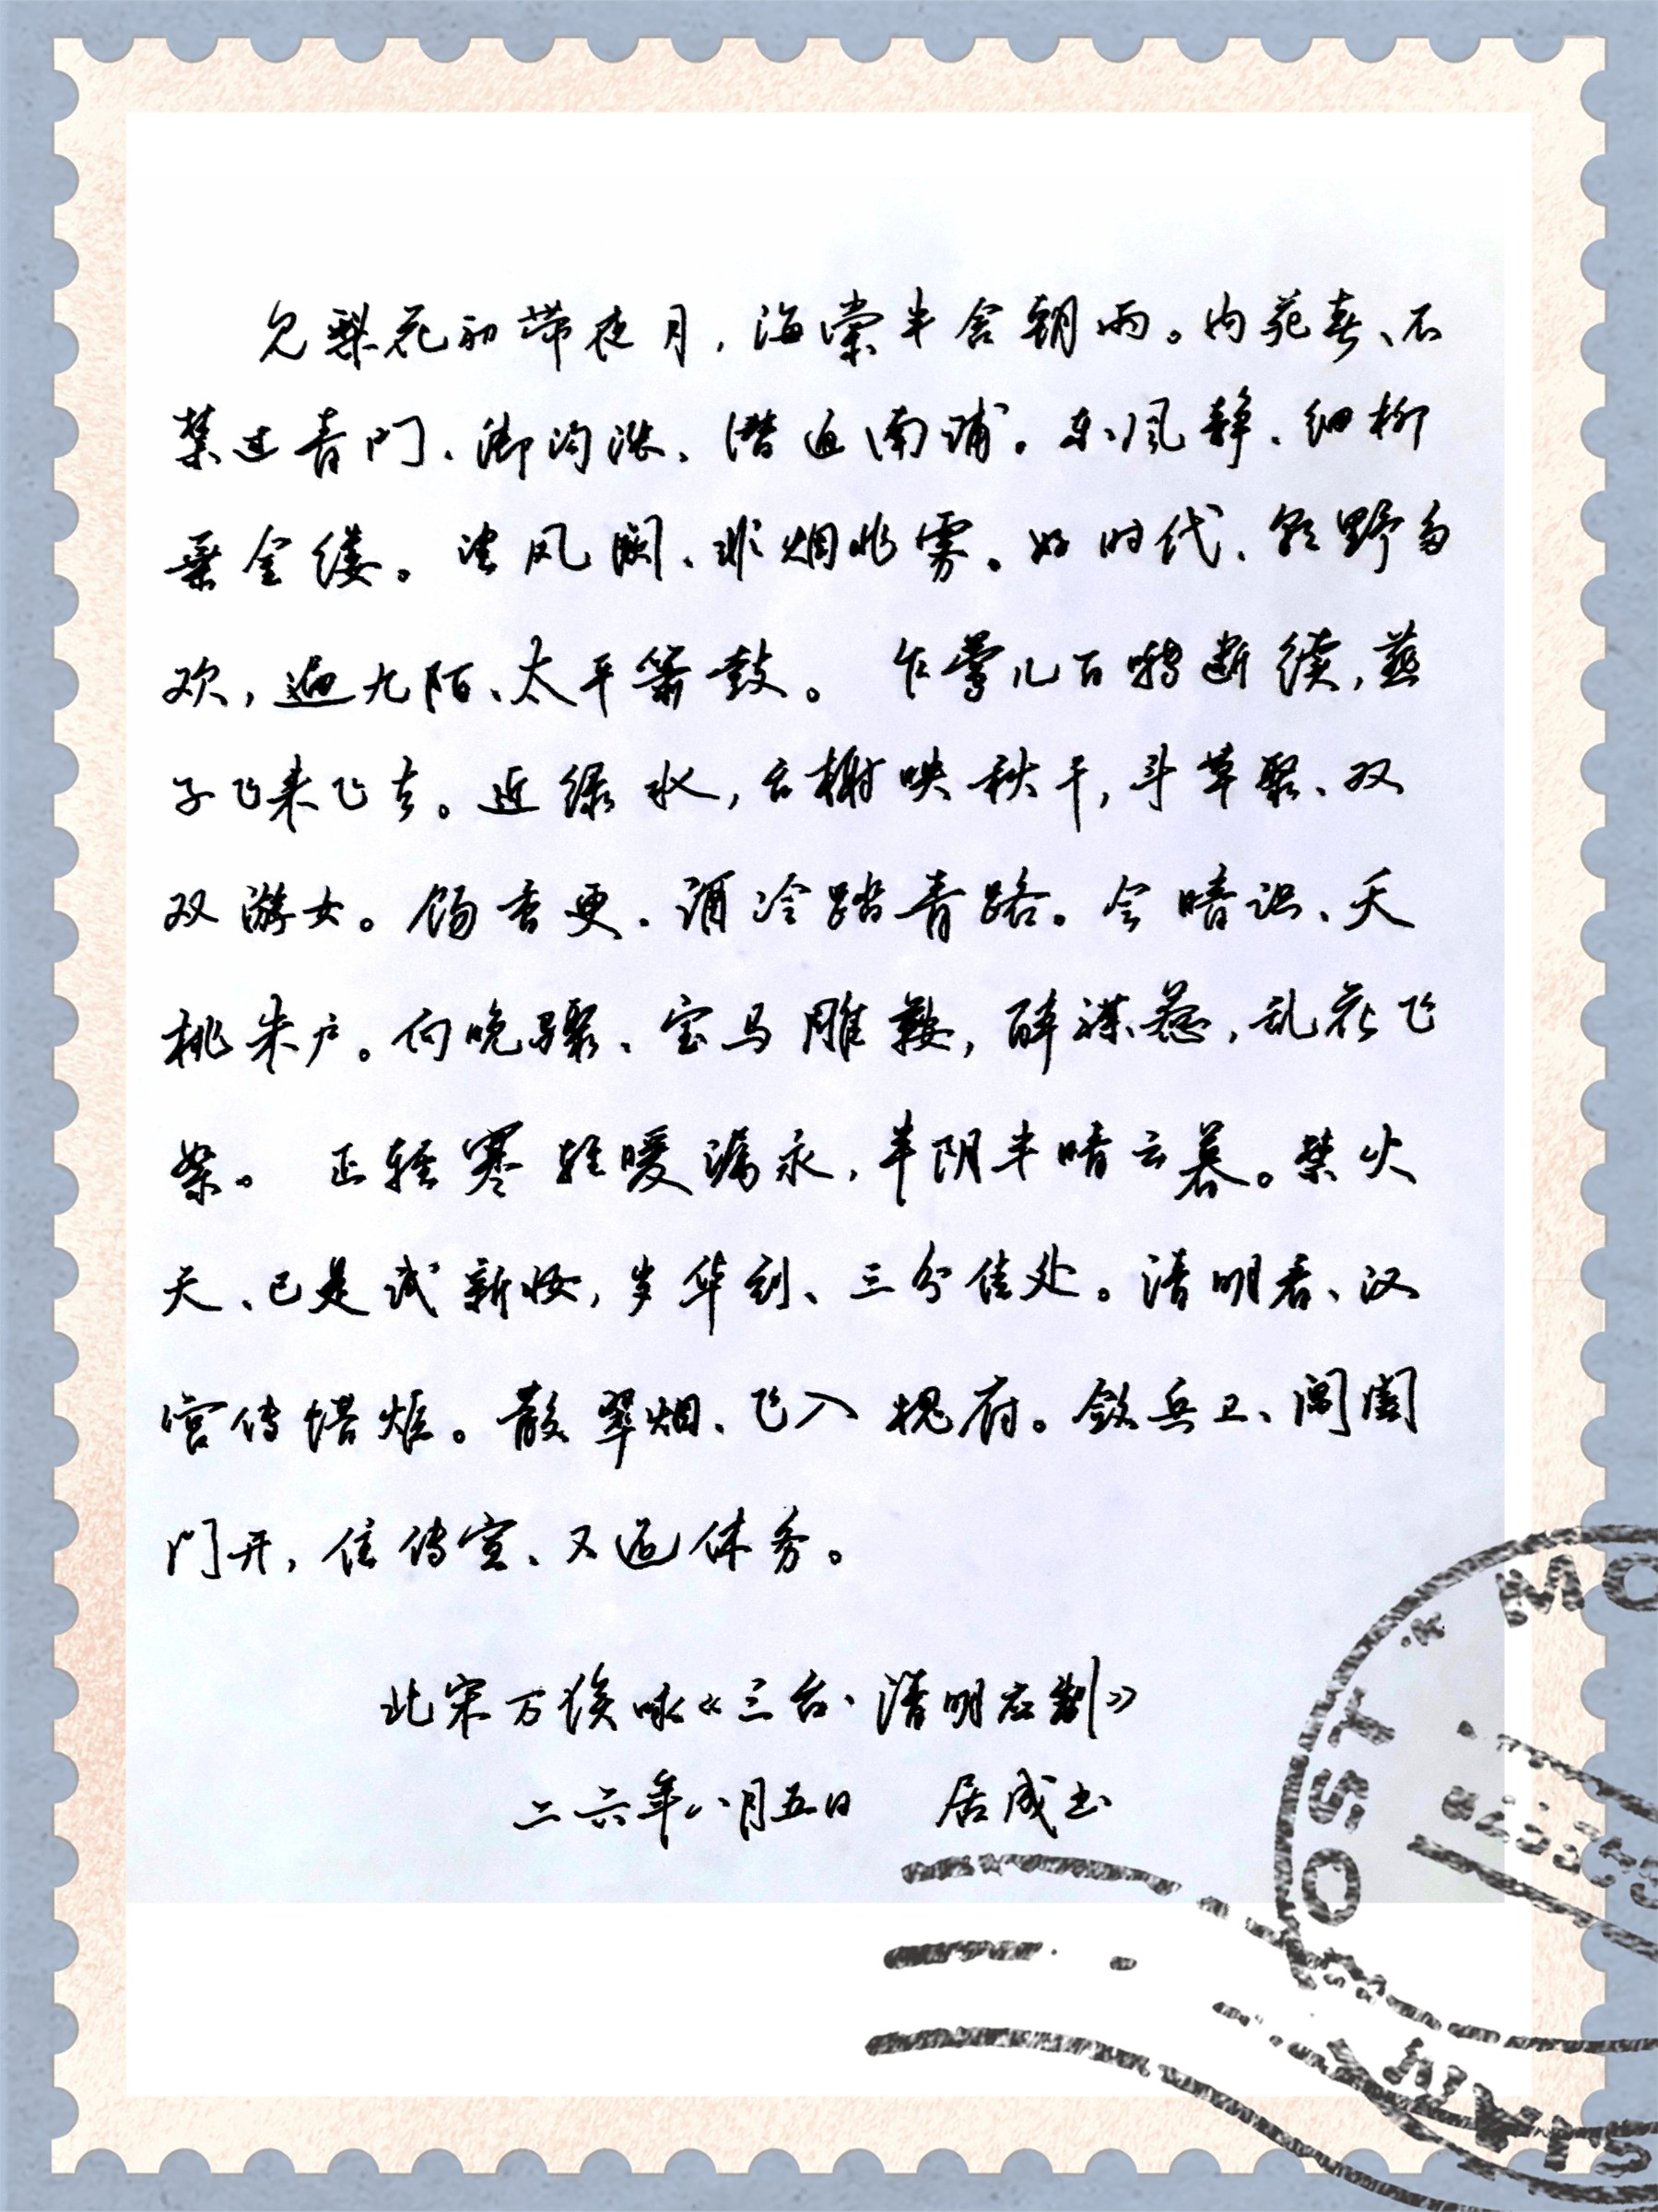 见梨花初带夜月，海棠半含朝雨。内苑春、不
禁过青门、御沟涨、潜通南浦。东风静、细柳
垂金缕。望凤阙、非烟非雾。好时代、朝野多
欢，遍九陌、太平箫鼓。 乍莺儿百啭断续，燕
子飞来飞去。近绿水，台榭映秋千，斗草聚、双
双游女。饧香更、酒冷踏青路。会暗识、夭
桃朱户。向晚骤、宝马雕鞍，醉襟惹，乱花飞
絮。 正轻寒轻暖漏永，半阴半晴云暮。禁火
天、已是试新妆，岁华到、三分佳处。清明看、汉
宫传蜡炬。散翠烟、飞入槐府。敛兵卫、阊阖
门开，住传宣、又还休务。
北宋万俟咏《三台·清明应制》
二六年八月五日 居成书
POST
MO